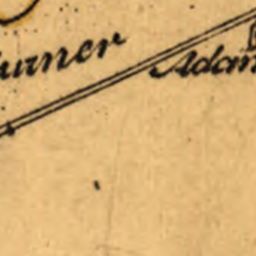 urner
Adam